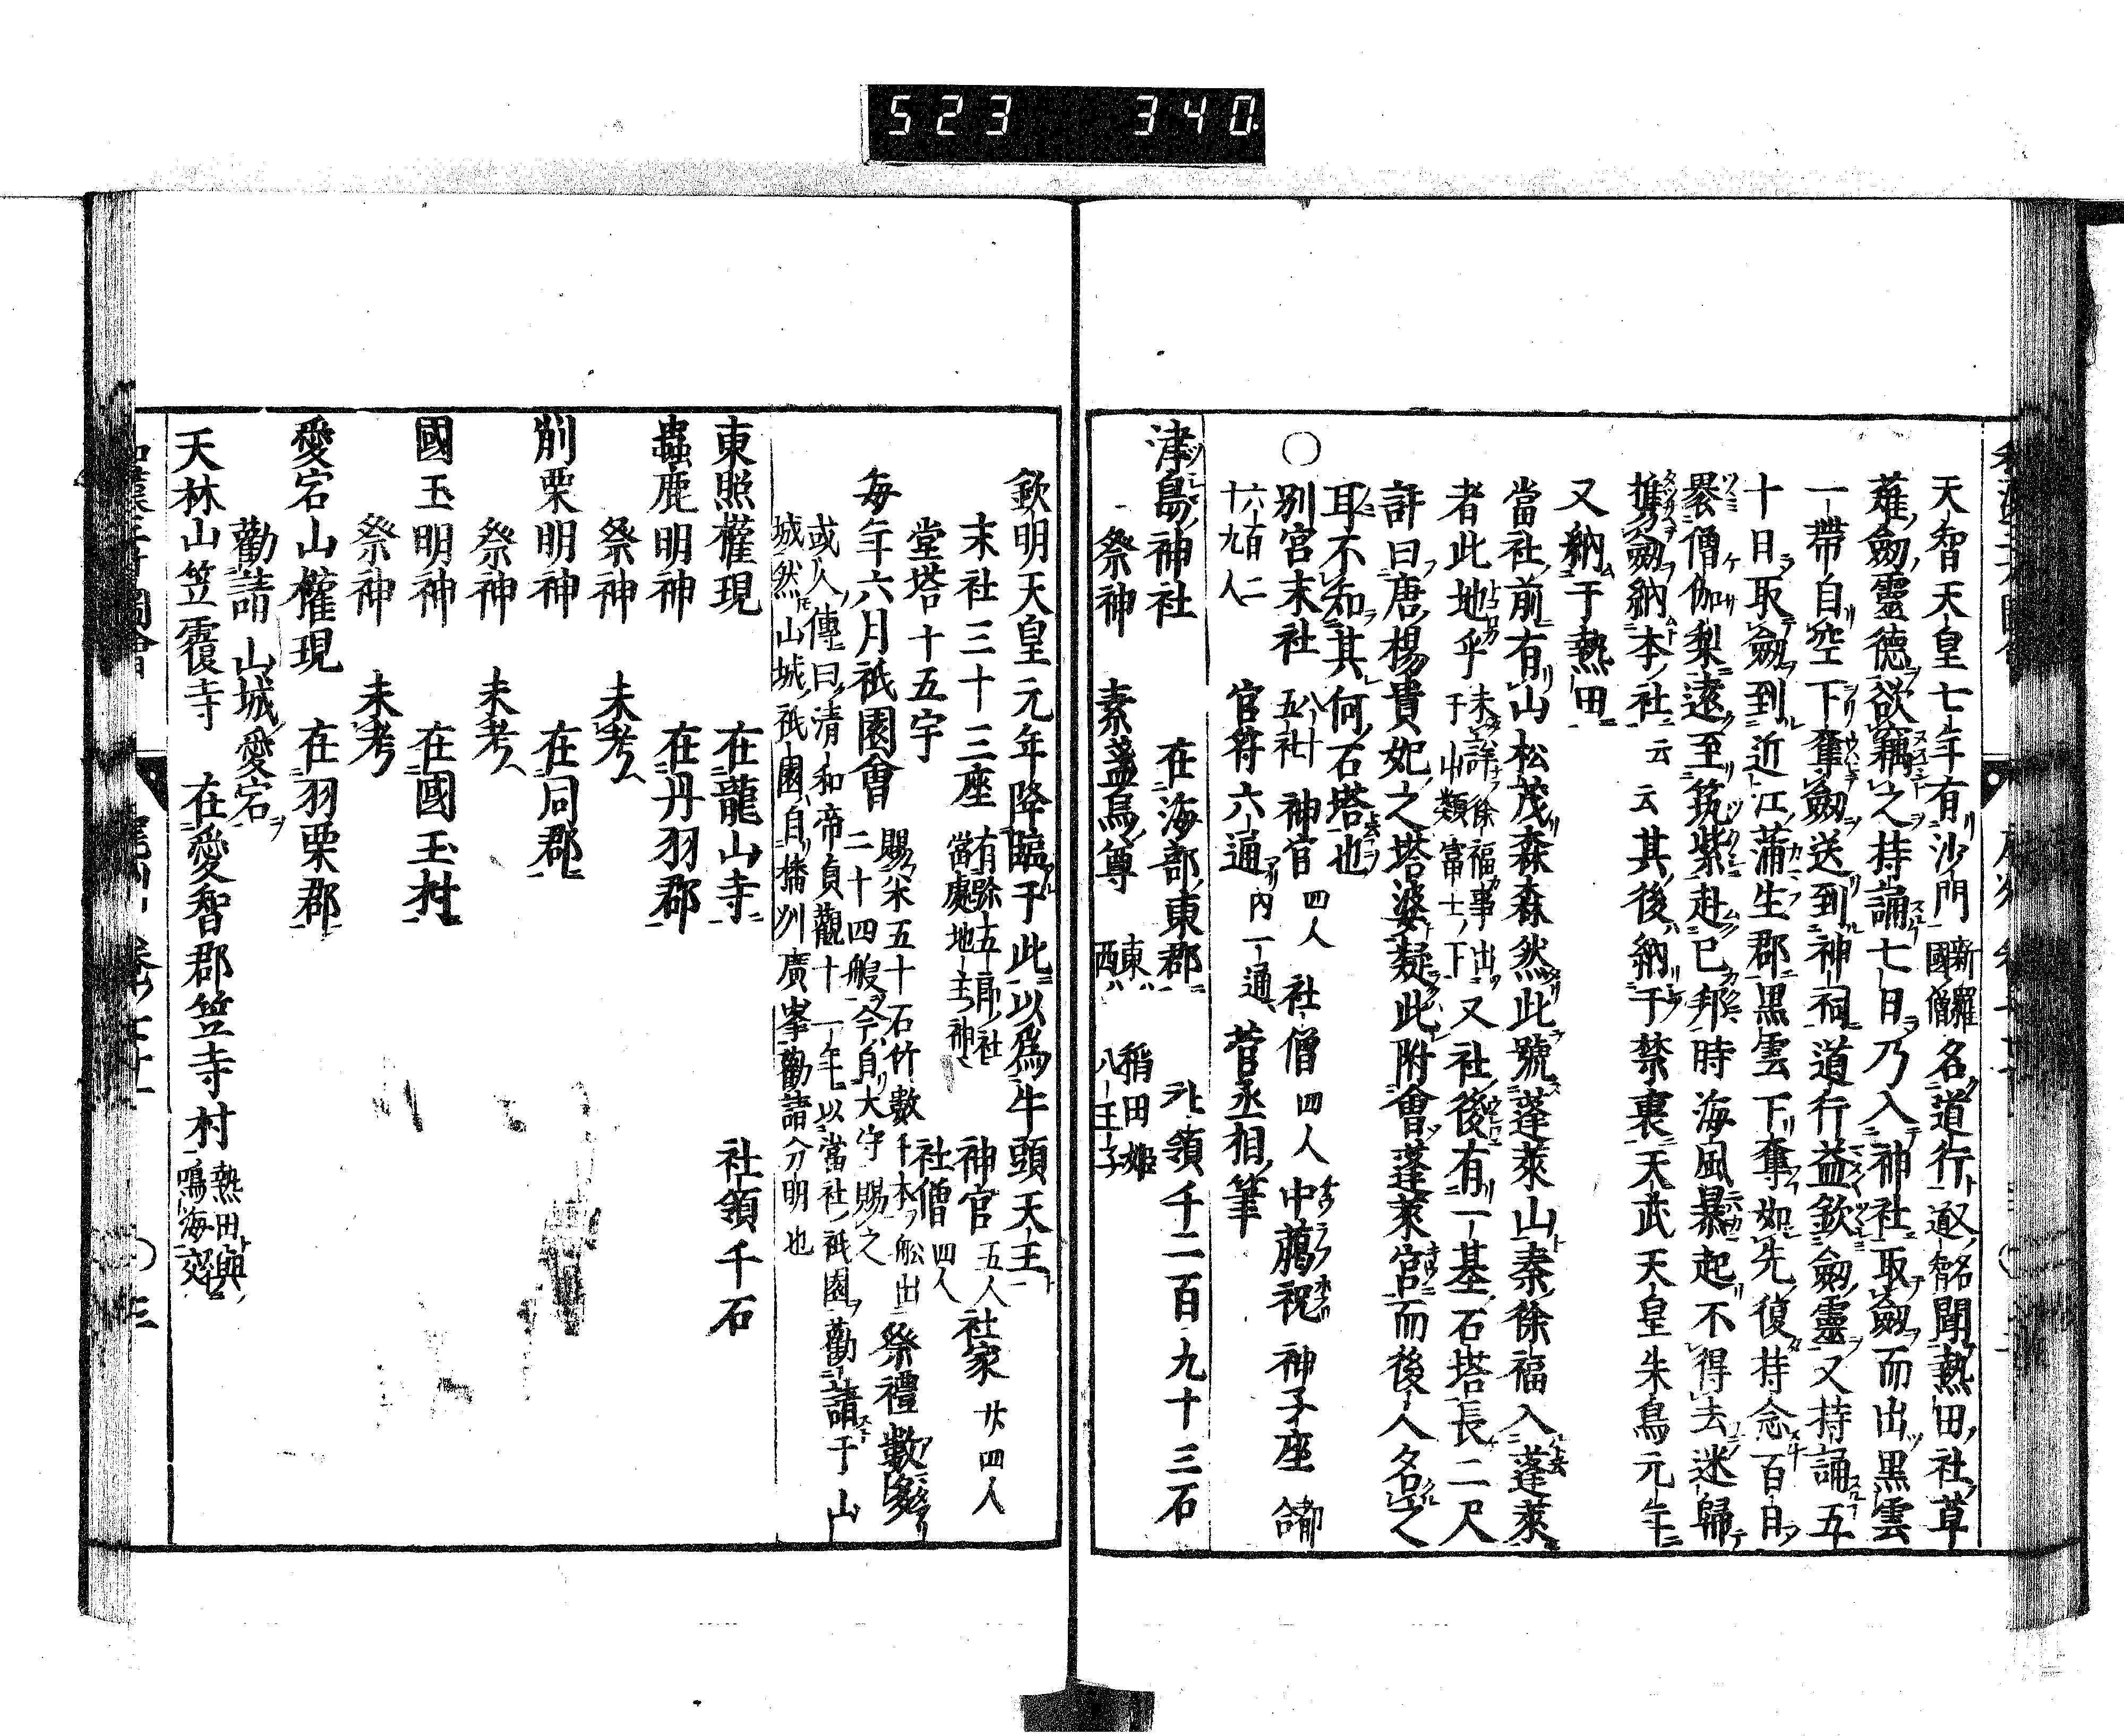 523 340
天智天皇七年有沙門新羅國僧名道行又名道智聞熱田社草
薙劔靈德欲竊之持誦七日乃入神社取劔而出黒雲
一帶自空下奪劔送到神祠道行益欽劔靈又持誦五
十日取劔到近江蒲生郡黒雲下奪如先復持念百日
褁僧伽梨遠至筑紫赴己邦時海風暴起不得去迷歸
携劔納本社云云其後納于禁裏天武天皇朱鳥元年
又納于熱田
當社前有山松茂森森然此號蓬萊山秦徐福入蓬萊
者此地乎未詳徐福事出于山類富士下又社後有一基石塔長二尺
許曰唐楊貴妃之塔婆擬此附會蓬萊宮而後人名之
耳不知其何石塔也
〇別宮末社八十五社 神官四人 社僧四人 中﨟祝 神子座 合都
六百二十九人 官符六通内一通菅丞相筆
津島神社 在海部東郡 社領千二百九十三石
祭神 素盞烏尊 東稻田姫 西八王子
欽明天皇元年降臨于此以爲牛頭天王
末社三十三座有弥五郎社當處地主神 神官五人 社家廿四人
堂塔十五宇 社僧四人
毎年六月祇園會賜米五十石竹數千本舩出二十四艘今自大守賜之祭禮數多
或人傳曰清和帝貞觀十一年以當社祇園勸請于山
城然山城祇園自播州廣峯勸請分明也
東照權現 在龍山寺 社領千石
蟲鹿明神 在丹羽郡
祭神 未考
削栗明神 在同郡
祭神 未考
國玉明神 在國玉村
祭神 未考
愛宕山權現 在羽栗郡
勸請山城愛宕
天林山笠覆寺 在愛智郡笠寺村熱田與鳴海交